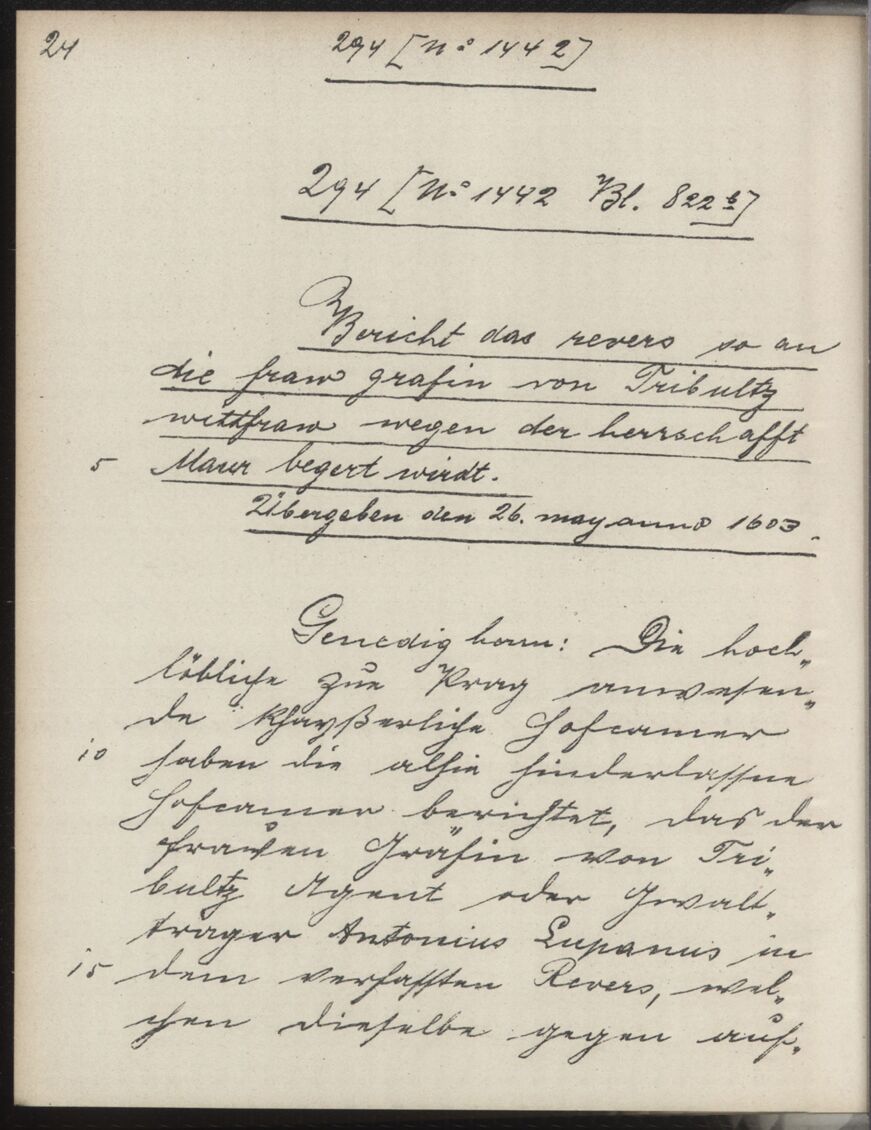 24
294 [No 1442]
294 [No 1442 Bl. 822b]
Bericht das revers so an
die fraw grafin von Tribultz
wittfraw wegen der herrschafft
5 Maur begert wirdt.
Übergeben den 26. may anno 1603.
Genedig herrn: Die hoch„
löbliche zue Prag anwesen„
de khayßerliche Hofcamer
10 haben die alhie hinderlassne
Hofcamer berichtet, das der
frawen Gräfin von Tri„
bultz Agent oder Gwalt„
trager Antonius Lupanus in
15 dem verfassten Revers, wel„
chen dieselbe gegen auf„